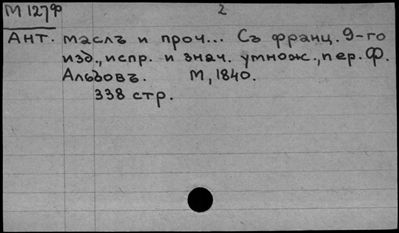 М 127Ф 2
Ант. маслъ и проч... Съ франц. 9-го
изд., испр. и знач. умнож., пер. Ф.
Альбовъ. М, 1840.
338 стр.